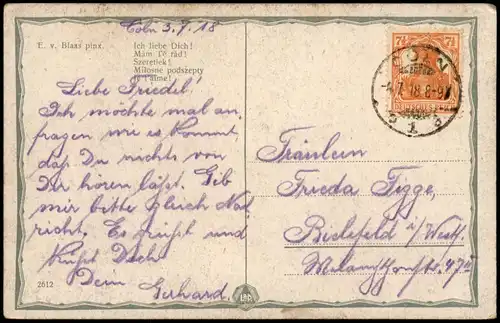 Cöln 3.7.18
E. v. Blaas pinx.
Ich liebe Dich!
Mám Tě rád!
Szeretlek!
Miłosne podszepty
T'aime!
Liebe Friedel!
Ich möchte mal an-
fragen wie es kommt,
daß Du nichts von
Dir hören läßt. Gib
mir bitte gleich Nach-
richt. Es grüßt und
küßt Dich
Dein
Gerhard.
2612
CÖLN
-4.7.18.8-9
7½
7½
Fräulein
Frieda Tigge.
Bielefeld i/Westf.
47